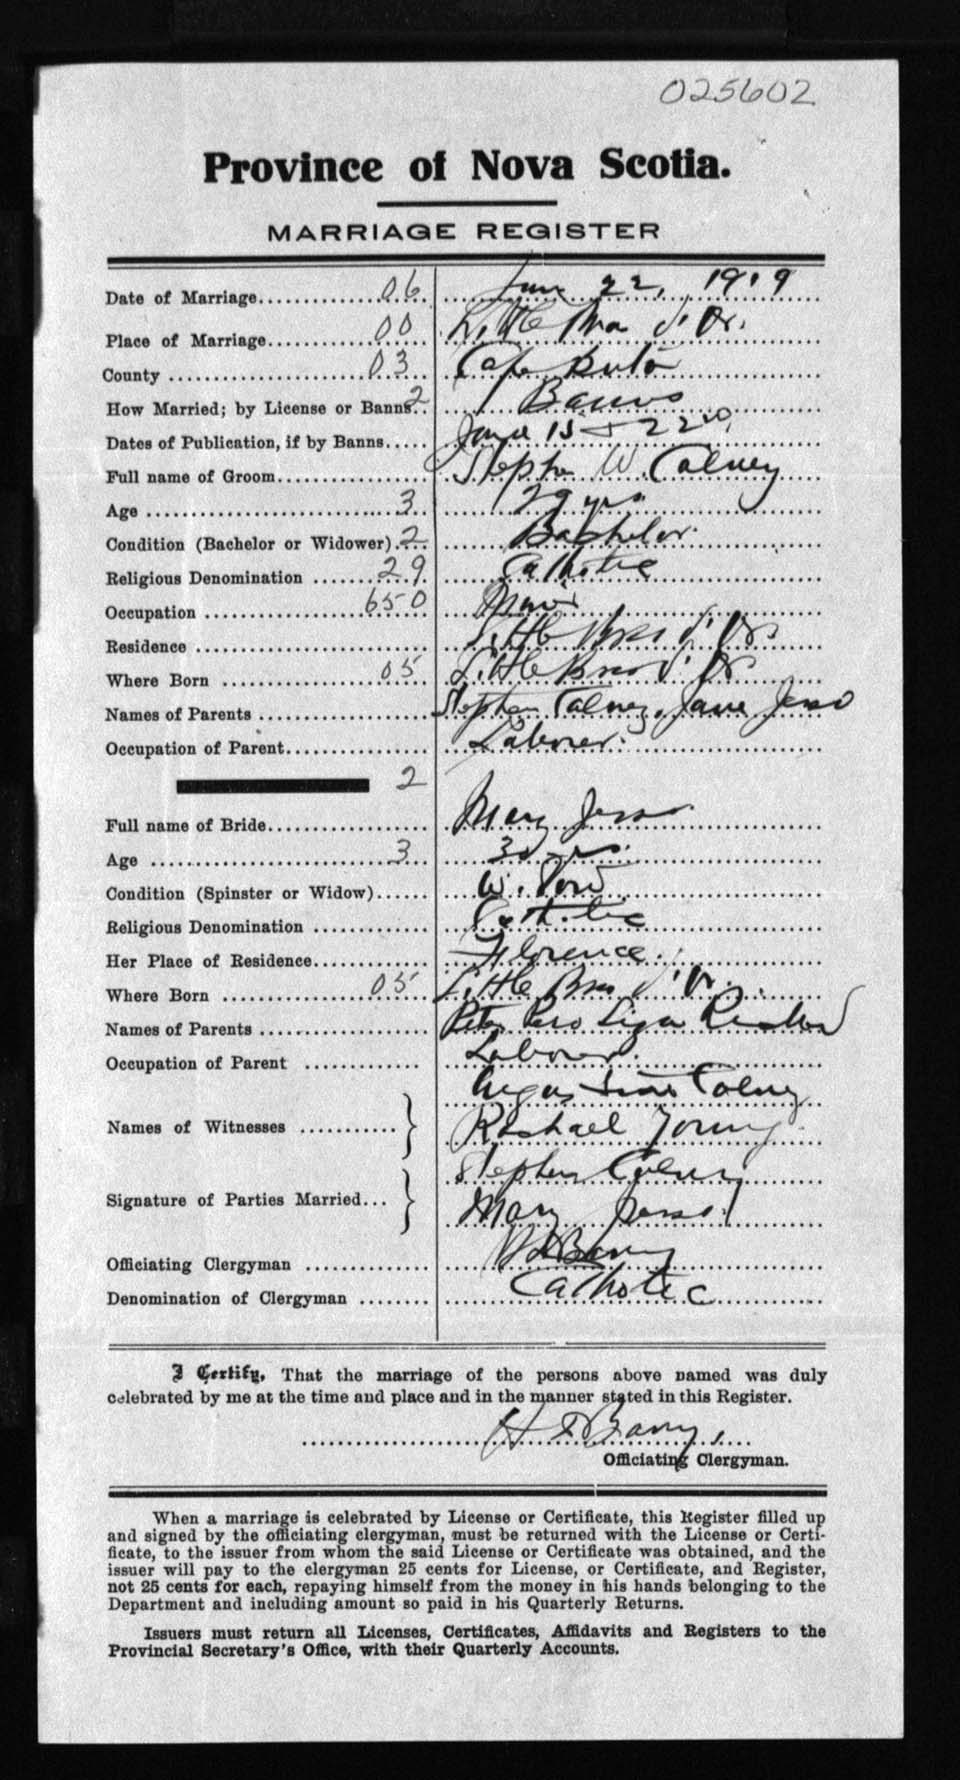 025602
Province of Nova Scotia.
MARRIAGE REGISTER
Date of Marriage 06 June 22, 1919
Place of Marriage 00 Little Bra d'Or.
County 03 Cape Breton
How Married; by License or Banns 2 Banns
Dates of Publication, if by Banns June 15 + 22nd,
Full name of Groom Stephen W. Calney
Age 3 29 yrs
Condition (Bachelor or Widower) 2 Bachelor.
Religious Denomination 29 Catholic
Occupation 650 Miner
Residence Little Bras d'Or.
Where Born 05 Little Bras d'Or
Names of Parents Stephen Calney, Jane Jesso
Occupation of Parent Laborer.
2
Full name of Bride Mary Jesso
Age 3 30 yrs.
Condition (Spinster or Widow) Widow
Religious Denomination Catholic
Her Place of Residence Florence.
Where Born 05 Little Bras d'Or.
Names of Parents Peter Liza
Occupation of Parent Laborer.
Names of Witnesses Angus Calney
Rachael Young
Signature of Parties Married Stephen Calney
Mary Jesso
Officiating Clergyman Barry
Denomination of Clergyman Catholic
I Certify, That the marriage of the persons above named was duly
celebrated by me at the time and place and in the manner stated in this Register.
Barry,
Officiating Clergyman.
When a marriage is celebrated by License or Certificate, this Register filled up
and signed by the officiating clergyman, must be returned with the License or Certi-
ficate, to the issuer from whom the said License or Certificate was obtained, and the
issuer will pay to the clergyman 25 cents for License, or Certificate, and Register,
not 25 cents for each, repaying himself from the money in his hands belonging to the
Department and including amount so paid in his Quarterly Returns.
Issuers must return all Licenses, Certificates, Affidavits and Registers to the
Provincial Secretary's Office, with their Quarterly Accounts.